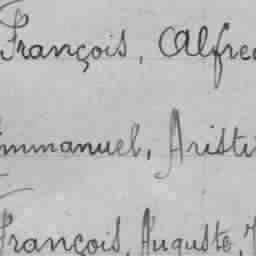 François, Alfred
Emmanuel, Aristi
François, Auguste, J